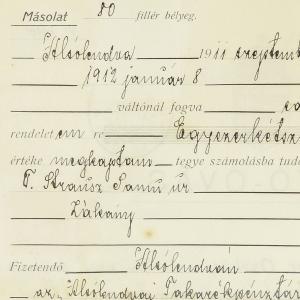 Másolat 80 fillér bélyeg.
Alsólendva 1911 szeptemb
1912 január 8
váltónál fogva
rendeletem re Egyezerkétsz
értéke megkaptam tegye számolásba tud
T. Strausz Samu úr
Zákány
Fizetendő Alsólendván
az „Alsólendvai Takarékpénztár